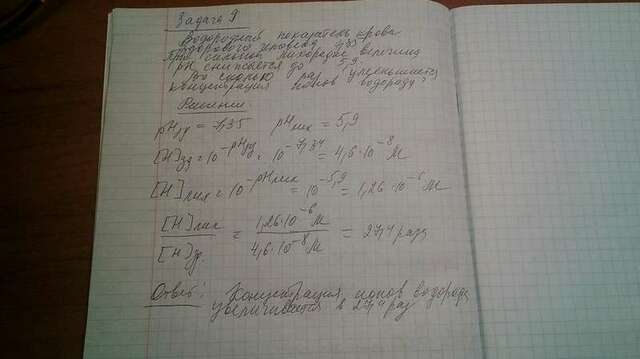 Задача 9
Водородный показатель крови
здорового человека 7,35
При сильной лихорадке величина
pH снижается до 5,9.
Во сколько раз уменьшается
концентрация ионов водорода?
Решение
pHзд = 7,35 pHлих = 5,9
[H]зд = 10^-pHзд = 10^-7,34 = 4,6·10^-8 М
[H]лих = 10^-pHлих = 10^-5,9 = 1,26·10^-6 М
[H]лих / [H]зд = 1,26·10^-6 М / 4,6·10^-8 М = 27,4 раза
Ответ: Концентрация ионов водорода
увеличивается в 27,4 раз